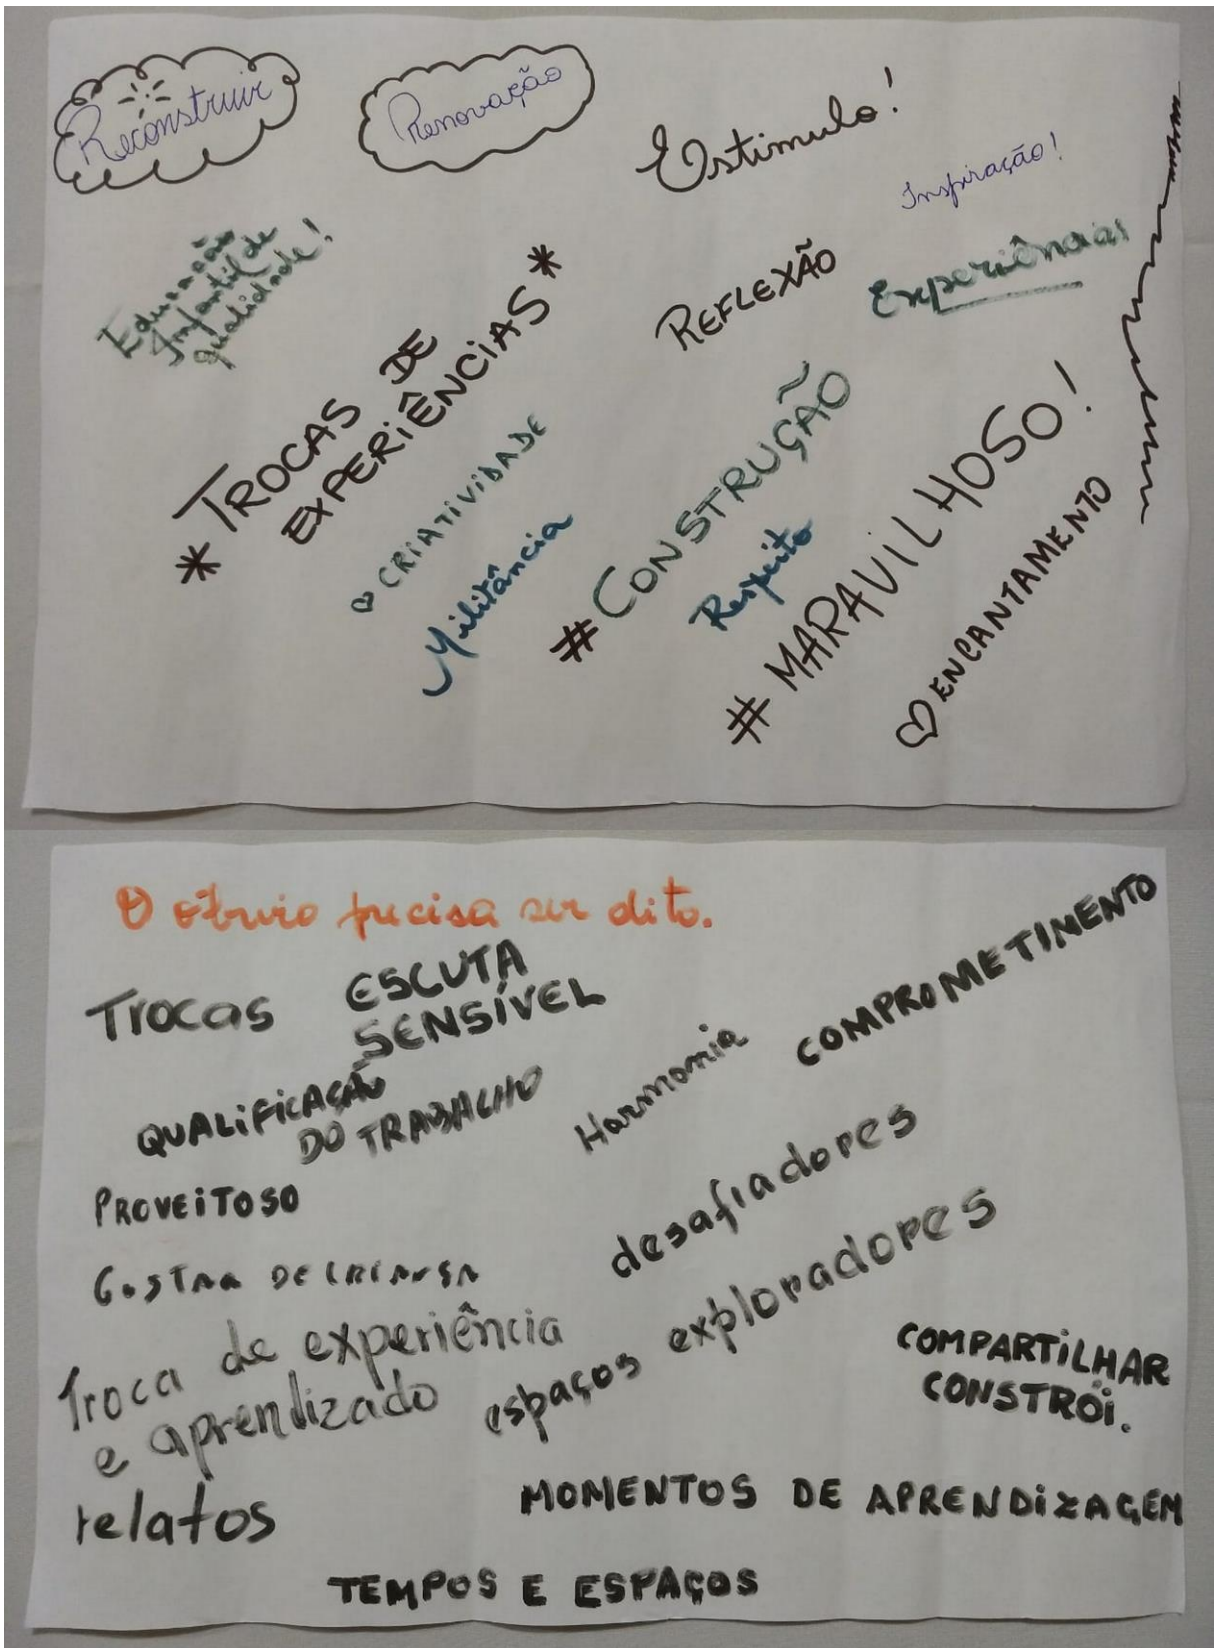 Reconstruir
Renovação
Estimulo!
Inspiração!
Educação
Infantil de
qualidade!
* TROCAS DE
EXPERIÊNCIAS *
REFLEXÃO
Experiências
CRIATIVIDADE
Militância
#CONSTRUÇÃO
Respeito
# MARAVILHOSO!
ENCANTAMENTO
O óbvio precisa ser dito.
Trocas
ESCUTA
SENSÍVEL
COMPROMETIMENTO
QUALIFICAÇÃO
DO TRABALHO
Harmonia
PROVEITOSO
desafiadores
GOSTAR DE CRIANÇA
Troca de experiência
e aprendizado
espaços exploradores
COMPARTILHAR
CONSTRÓI.
relatos
MOMENTOS DE APRENDIZAGEM
TEMPOS E ESPAÇOS